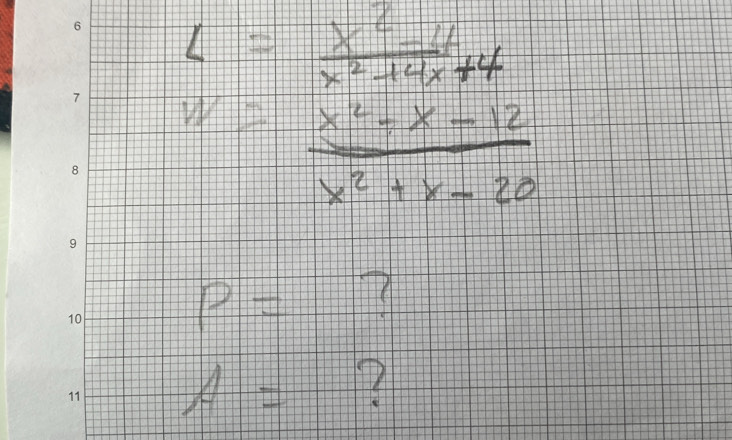 6
L = x² - 4
x² + 4x + 4
7
W = x² - x - 12
8
x² + x - 20
9
P = ?
10
A = ?
11